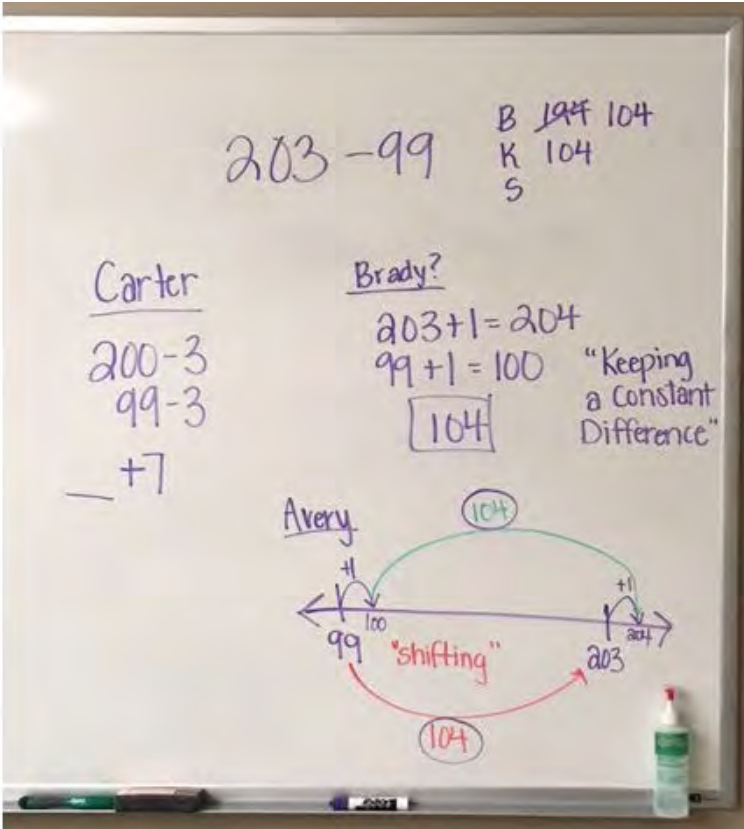 203 - 99
B 194 104
K 104
S
Carter
200-3
99-3
_ +7
Brady?
203+1=204
99+1=100
104
"Keeping
a Constant
Difference"
Avery
104
+1
+1
99
100
203
204
"shifting"
104
EXPO